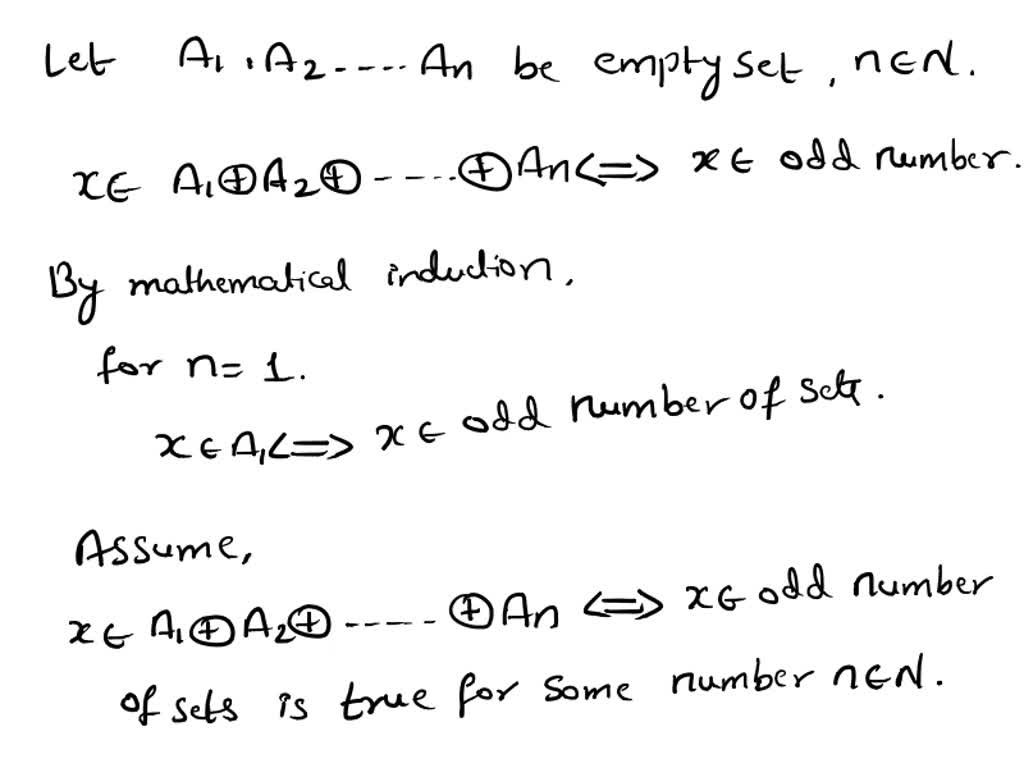 Let A₁, A₂ ---- An be empty set, n∈N.
x∈ A₁⊕A₂⊕ ----⊕An<=> x∈ odd number.
By mathematical induction,
for n= 1.
x∈A₁<=> x∈ odd number of sets.
Assume,
x∈ A₁⊕A₂⊕ ----- ⊕An <=> x∈ odd number
of sets is true for some number n∈N.